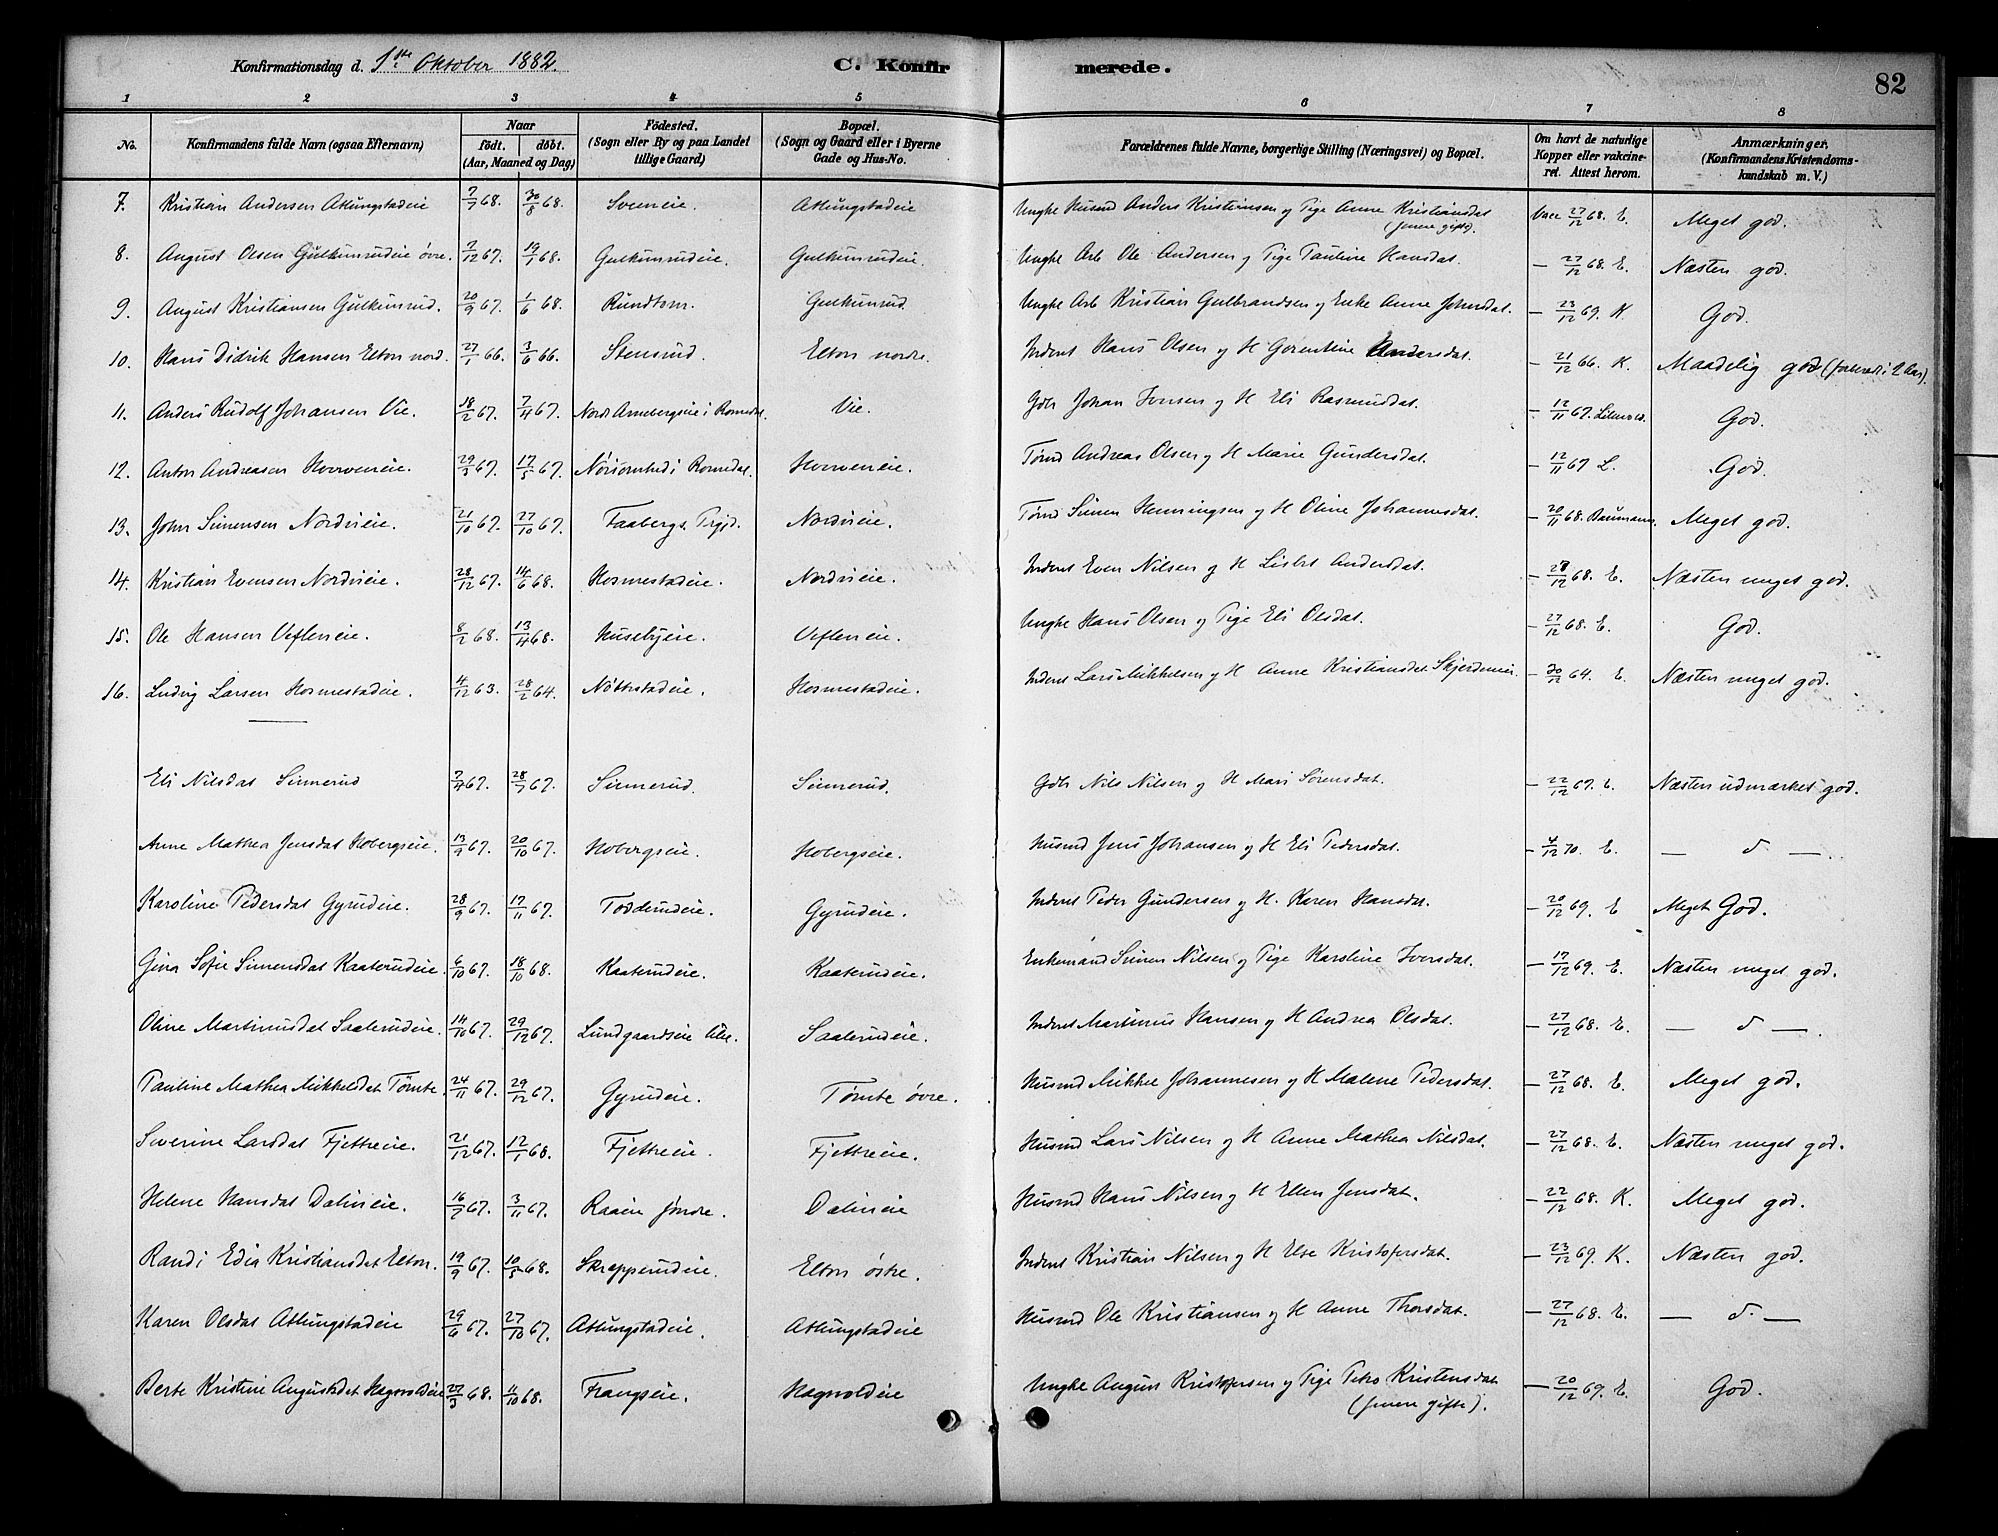 Konfirmationsdag d. 1ste Oktober 1882. C. Konfir merede. 82
1 2 3 4 5 6 7 8
No. Konfirmandens fulde Navn (ogsaa Efternavn) Naar födt. döbt. (Aar, Maaned og Dag) Födested. (Sogn eller By og paa Landet tillige Gaard) Bopæl. (Sogn og Gaard eller i Byerne Gade og Hus-No. Forældrenes fulde Navne, borgerlige Stilling (Næringsvei) og Bopæl. Om havt de naturlige Kopper eller vakcineret. Attest herom. Anmærkninger. (Konfirmandens Kristendomskundskab m. V.)
7. Kristian Andersen Atlungstadeie 7/7 68. 30/8 68. Sveneie. Atlungstadeie Ungke Husmd Anders Kristiansen og Pige Anne Kristiansdat (senere gifte). Vacc 27/12 68. E. Meget god.
8. August Olsen Gulkunrudeie øvre. 7/12 67. 19/1 68. Gulkunrudeie. Gulkunrudeie. Ungke Arb Ole Andersen og Pige Pauline Hansdat. — 27/12 68. E. Næsten god.
9. August Kristiansen Gulkunrud. 20/9 67. 1/6 68. Rundtom. Gulkunrud. Ungke Arb Kristian Gulbrandsen og Enke Anne Johnsdat. — 23/12 69. K God.
10. Hans Didrik Hansen Elton nord. 27/1 66. 3/6 66. Stensrud. Elton nordre. Inderst Hans Olsen og H Gorentine Andersdat. — 21/12 66. K. Maadelig god
11. Anders Rudolf Johansen Vie. 18/2 67. 7/4 67. Nordr Arnebergseie i Romedal. Vie. Gdbr Johan Iversen og H Eli Rasmusdat. — 12/11 67. God.
12. Anton Andreasen Horveneie. 29/3 67. 17/5 67. i Romedal. Horveneie. Tømd Andreas Olsen og H Marie Gundersdat. — 12/11 67 L. God.
13. John Simensen Nordvieie. 21/10 67. 27/10 67. Faabergs Prgjd. Nordvieie. Tømd Simen Henningsen og H Oline Johannesdat. — 20/11 68. Baumann. Meget god.
14. Kristian Evensen Nordvieie. 28/12 67. 14/6 68. Hosmestadeie. Nordvieie. Inderst Even Nilsen og H Lisbet Andersdat. — 27/12 68. E. Næsten meget god.
15. Ole Hansen Vefleneie. 8/2 68. 13/4 68. Husebyeie. Vefleneie. Ungke Hans Olsen og Pige Eli Olsdat. — 27/12 68. E. God.
16. Ludvig Larsen Hosmestadeie. 4/12 63. 28/2 64. Nøttestadeie. Hosmestadeie. Inderst Lars Mikkelsen og H Anne Kristiansdat Skjerdeneie. — 20/12 64. E. Næsten meget god.
Eli Nilsdat Sinnerud 7/4 67. 28/7 67. Sinnerud. Sinnerud. Gdbr Nils Nilsen og H Mari Sørensdat. — 22/12 67. E. Næsten udmærket god.
Anne Mathea Jensdat Hobergseie. 13/9 67. 20/10 67. Hobergseie. Hobergseie. Husmd Jens Johansen og H Eli Pedersdat. — 4/12 70. E. — d —.
Karoline Pedersdat Gyrudeie. 28/9 67. 17/11 67. Todderudeie. Gyrudeie. Inderst Peder Gundersen og H. Karen Hansdat. — 20/12 69. E Meget God.
Gina Sofie Simensdat Kaaterudeie. 6/10 67. 18/10 68. Kaaterudeie. Kaaterudeie. Enkemand Simen Nilsen og Pige Karoline Iversdat. — 17/12 69. E. Næsten meget god.
Oline Martinusdat Saaterudeie. 14/10 67. 29/12 67. Lundgaardseie lille. Saaterudeie. Inderst Martinus Hansen og H Andrea Olsdat. — 27/12 68. E. — d —.
Pauline Mathea Mikkelsdat Tømte. 24/11 67. 29/12 67. Gyrudeie. Tømte øvre. Husmd Mikkel Johannesen og H Malene Pedersdat. — 27/12 68. E. Meget god.
Severine Larsdat Fjettreeie. 21/12 67. 12/1 68. Fjettreeie. Fjettreeie. Husmd Lars Nilsen og H Anne Mathea Nilsdat. — 27/12 68. E. Næsten meget god.
Helene Hansdat Dalineie. 16/7 67. 3/11 67. Raaeie søndre. Dalineie Husmd Hans Nilsen og H Ellen Jensdat. — 22/12 68. K. Meget god.
Randi Edia Kristiansdat Elton. 19/9 67. 10/5 68. Skrepperudeie. Elton østre. Inderst Kristian Nilsen og H Else Kristofersdat. — 23/12 69. K. Næsten god.
Karen Olsdat Atlungstadeie 29/6 67. 27/10 67. Atlungstadeie. Atlungstadeie Husmd Ole Kristiansen og H Anne Thorsdat. — 27/12 68. E. — d. —
Berte Kristine Augustsdat Hagsvoldeie 27/3 68. 11/10 68. Frangseie. Hagsvoldeie Ungke August Kristofersen og Pige Kristensdat (senere gifte). — 20/12 69. E. God.